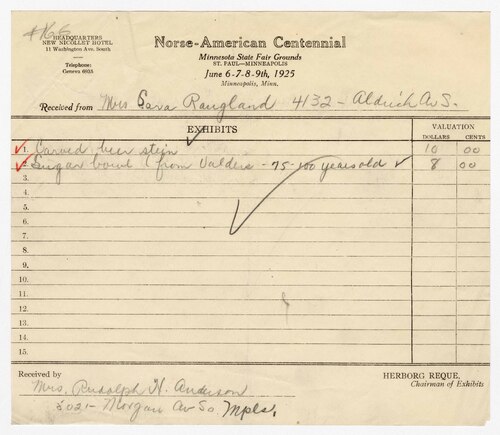 #166
HEADQUARTERS
NEW NICOLLET HOTEL
11 Washington Ave. South
Telephone:
Geneva 6935
Norse-American Centennial
Minnesota State Fair Grounds
ST. PAUL—MINNEAPOLIS
June 6-7-8-9th, 1925
Minneapolis, Minn.
Received from Mrs Sara Raugland 4132 - Aldrich Av S.
EXHIBITS
VALUATION
DOLLARS CENTS
1. Carved beer stein 10 00
2. Sugar bowl (from Valders - 75-100 years old 8 00
3.
4.
5.
6.
7.
8.
9.
10.
11.
12.
13.
14.
15.
Received by
Mrs. Rudolph H. Anderson
5021 - Morgan Av So Mpls.
HERBORG REQUE,
Chairman of Exhibits